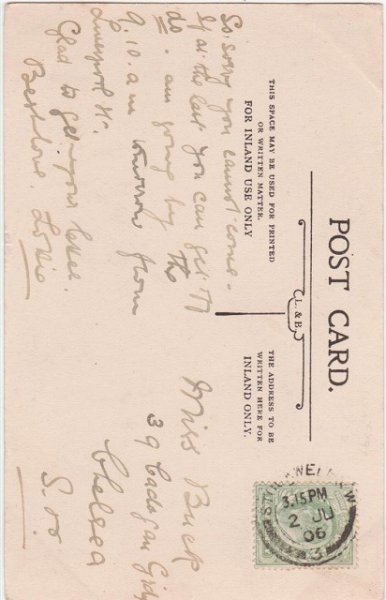 POST CARD.
THIS SPACE MAY BE USED FOR PRINTED
OR WRITTEN MATTER.
FOR INLAND USE ONLY
L. & B.
THE ADDRESS TO BE
WRITTEN HERE FOR
INLAND ONLY.
So sorry you cannot come -
If at the last you can get
do. am going by the
9.10. a.m tomorrow from
Liverpool St.
Glad to get your letter.
Best love.
Miss Buck
39 Cadogan
Chelsea
S.W.
3.15 PM
2 JU
06
3